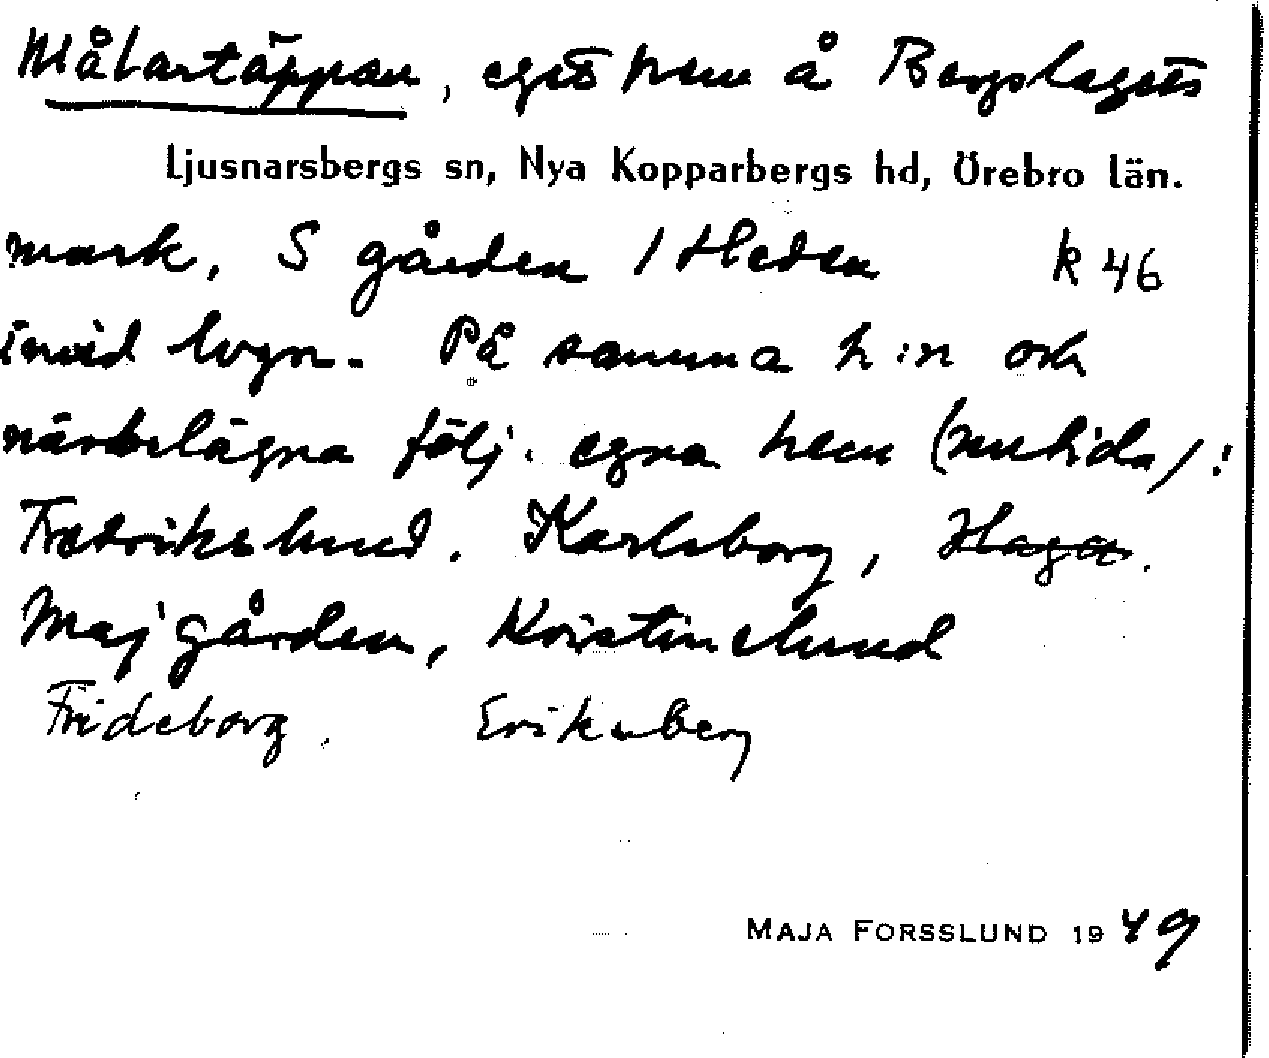 Målartäppan, eget hem å Bergslagets
Ljusnarsbergs sn, Nya Kopparbergs hd, Örebro län.
mark, S gården / Heden k 46
invid lvgn. På samma h:n och
närbelägna följ. egna hem (nutida):
Fredrikslund. Karlsborg, Haga.
Majgården, Kristinelund
Frideborg. Eriksberg
MAJA FORSSLUND 1949